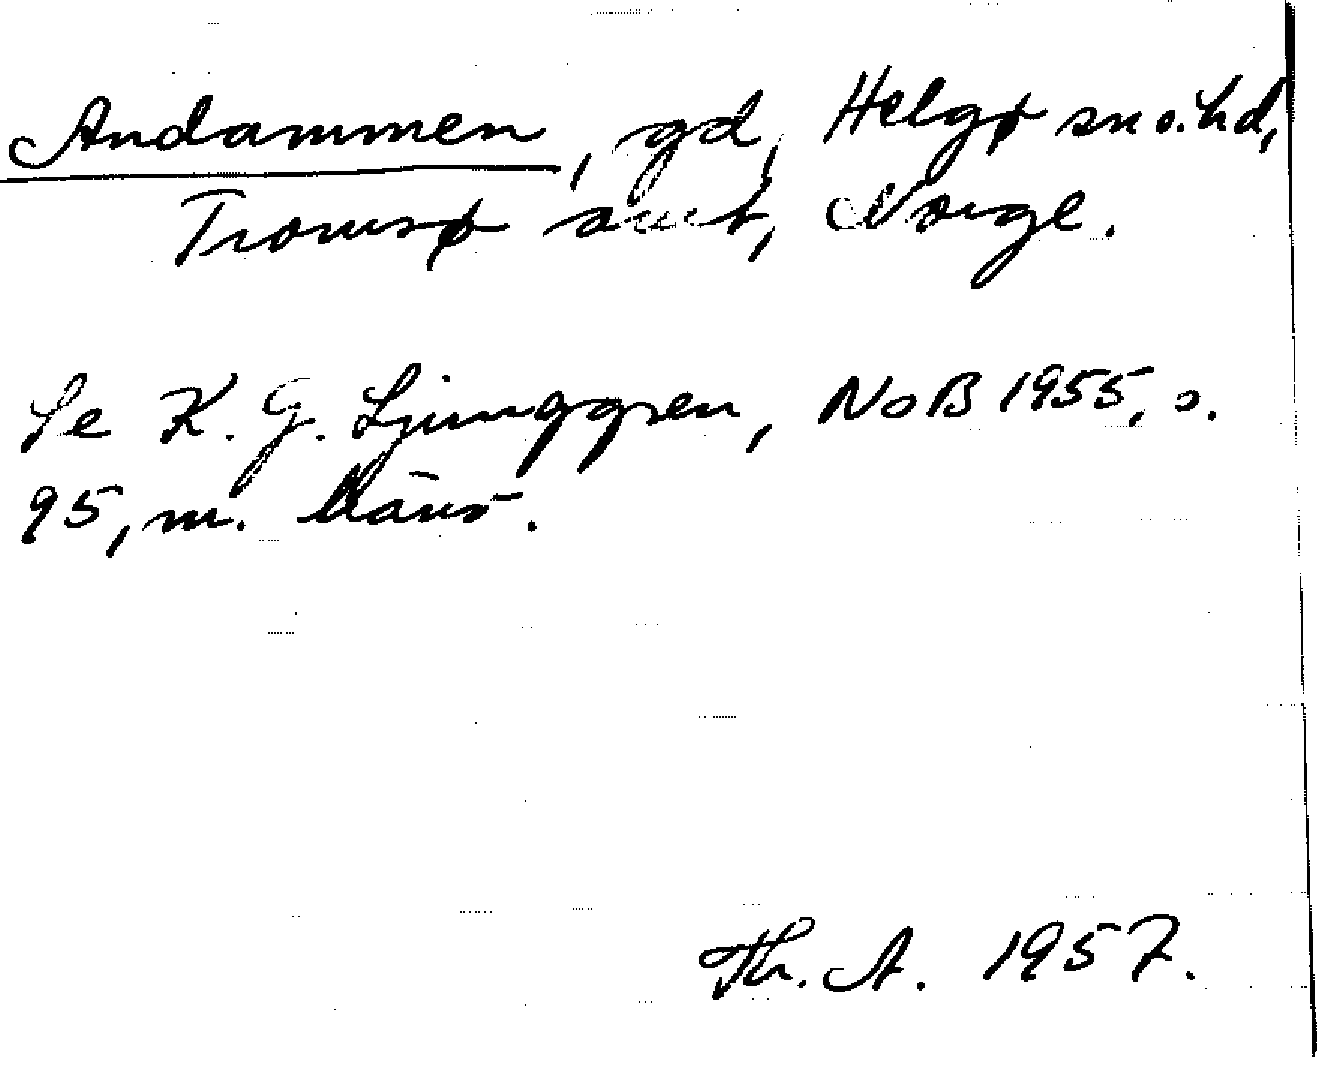 Andammen, gd, Helgø sn o. hd,
Tromsø amt, Norge.
Se K. G. Ljunggren, NoB 1955, s.
95, m. hänv.
Th. A. 1957.